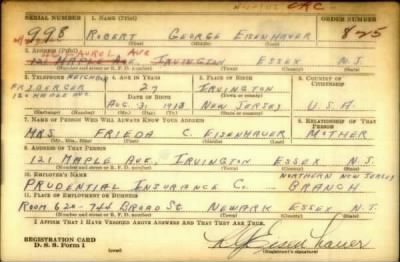 CAC.
SERIAL NUMBER 1. NAME (Print) ORDER NUMBER
998 ROBERT GEORGE EISENHAUER 825
(First) (Middle) (Last)
LAUREL AVE
2. ADDRESS (Print)
121 MAPLE AVE. IRVINGTON ESSEX N.J.
(Number and street or R. F. D. number) (Town) (County) (State)
3. TELEPHONE NEIGHBOR 4. AGE IN YEARS 5. PLACE OF BIRTH 6. COUNTRY OF CITIZENSHIP
FRISBERGER 27 IRVINGTON
126 MAPLE AVE DATE OF BIRTH (Town or county)
AUG. 31, 1913 NEW JERSEY U.S.A.
(Mo.) (Day) (Yr.) (State or country)
7. NAME OF PERSON WHO WILL ALWAYS KNOW YOUR ADDRESS 8. RELATIONSHIP OF THAT PERSON
MRS. FRIEDA C. EISENHAUER MOTHER
(Mr., Mrs., Miss) (First) (Middle) (Last)
9. ADDRESS OF THAT PERSON
121 MAPLE AVE. IRVINGTON ESSEX N.J.
(Number and street or R. F. D. number) (Town) (County) (State)
10. EMPLOYER'S NAME NORTHERN NEW JERSEY
PRUDENTIAL INSURANCE Co — BRANCH
11. PLACE OF EMPLOYMENT OR BUSINESS
ROOM 620-744 BROAD St. NEWARK ESSEX N.J.
(Number and street or R. F. D. number) (Town) (County) (State)
I AFFIRM THAT I HAVE VERIFIED ABOVE ANSWERS AND THAT THEY ARE TRUE.
REGISTRATION CARD
D. S. S. Form 1 (over) (Registrant's signature)
Eisenhauer